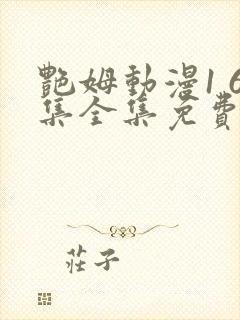 艷姆動漫16
集全集免費
莊子